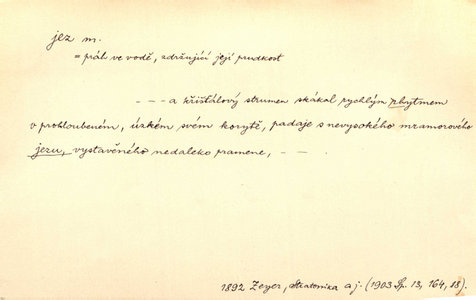 jez m.
= práh ve vodě, zdržující její prudkost
– – – a křišťálový strumen skákal rychlým rhytmem
v prohloubeném, úzkém svém korytě, padaje s nevysokého mramorového
jezu, vystavěného nedaleko pramene, – –
1892 Zeyer, Stratonika a j. (1903 Sp. 13, 164, 18).